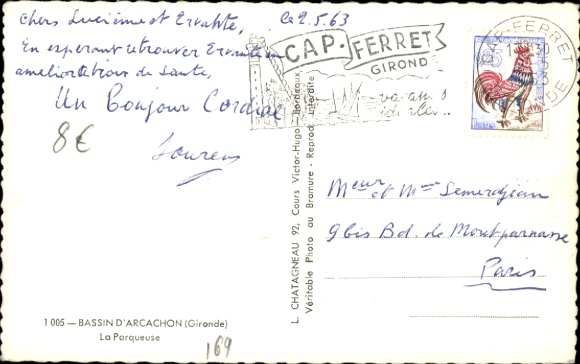 Ce 2.5.63
Chers Lucienne et Ervahte,
En esperant retrouver
amelioration de Santé,
Un Bonjour Cordial
8€
CAP-FERRET
GIRONDE
vacances
CAP-FERRET
GIRONDE
Meur et Mme Semerdjian
9 bis Bd. de Montparnasse
Paris
L. CHATAGNEAU 92, Cours Victor-Hugo - Bordeaux
Véritable Photo au Bromure - Reprod. Interdite
1 005 — BASSIN D'ARCACHON (Gironde)
La Parqueuse
169